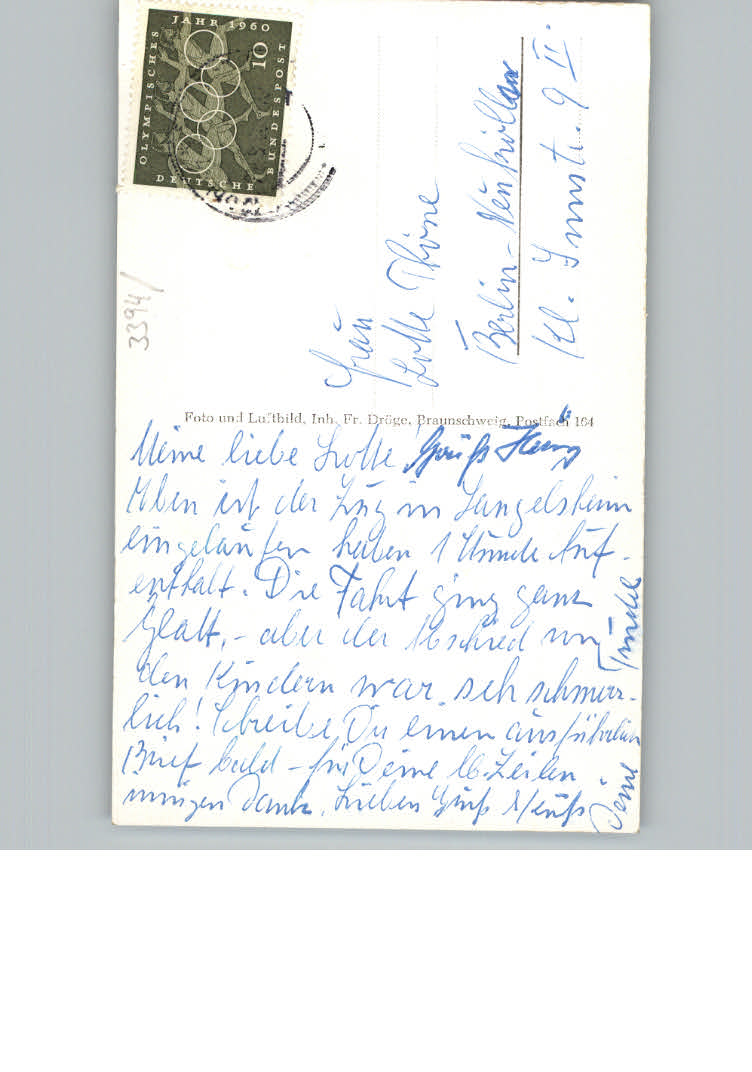 OLYMPISCHES
JAHR 1960
10
BUNDESPOST
DEUTSCHE
3394/
Frau
Lotte Thöne
Berlin-Neukölln
Kl. 9 II.
Foto und Luftbild, Inh. Fr. Dröge, Braunschweig, Postfach 164
Meine liebe Lotte! Gruß
Eben ist der Zug in Langelsheim
eingelaufen haben 1 Stunde Auf-
enthalt. Die Fahrt ging ganz
glatt, - aber der Abschied von
den Kindern war seh schmerz-
lich! Schreibe Du einen ausführlichen
Brief bald - für Deine lb. Zeilen
innigen Dank. Lieben Gruß
Deine